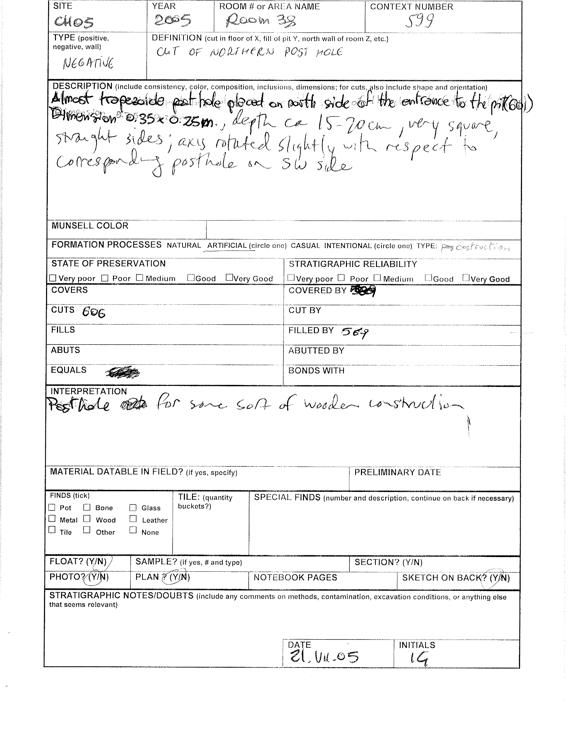 SITE YEAR ROOM # or AREA NAME CONTEXT NUMBER
CH05 2005 Room 38 599
TYPE (positive, negative, wall) DEFINITION (cut in floor of X, fill of pit Y, north wall of room Z, etc.)
NEGATIVE CUT OF NORTHERN POST HOLE
DESCRIPTION (include consistency, color, composition, inclusions, dimensions; for cuts, also include shape and orientation)
Almost trapezoide post hole placed on north side of the entrance to the pit (601)
Dimension 0.35 x 0.25m, depth ca 15-20cm, very square,
straight sides; axis rotated slightly with respect to
corresponding posthole on SW side
MUNSELL COLOR
FORMATION PROCESSES NATURAL ARTIFICIAL (circle one) CASUAL INTENTIONAL (circle one) TYPE:
STATE OF PRESERVATION STRATIGRAPHIC RELIABILITY
Very poor Poor Medium Good Very Good Very poor Poor Medium Good Very Good
COVERS COVERED BY
CUTS 606 CUT BY
FILLS FILLED BY 569
ABUTS ABUTTED BY
EQUALS BONDS WITH
INTERPRETATION
Posthole for some sort of wooden construction
MATERIAL DATABLE IN FIELD? (if yes, specify) PRELIMINARY DATE
FINDS (tick) TILE: (quantity buckets?) SPECIAL FINDS (number and description, continue on back if necessary)
Pot Bone Glass
Metal Wood Leather
Tile Other None
FLOAT? (Y/N) SAMPLE? (if yes, # and type) SECTION? (Y/N)
PHOTO? (Y/N) PLAN ? (Y/N) NOTEBOOK PAGES SKETCH ON BACK? (Y/N)
STRATIGRAPHIC NOTES/DOUBTS (include any comments on methods, contamination, excavation conditions, or anything else
that seems relevant)
DATE INITIALS
21.VII.05 IG